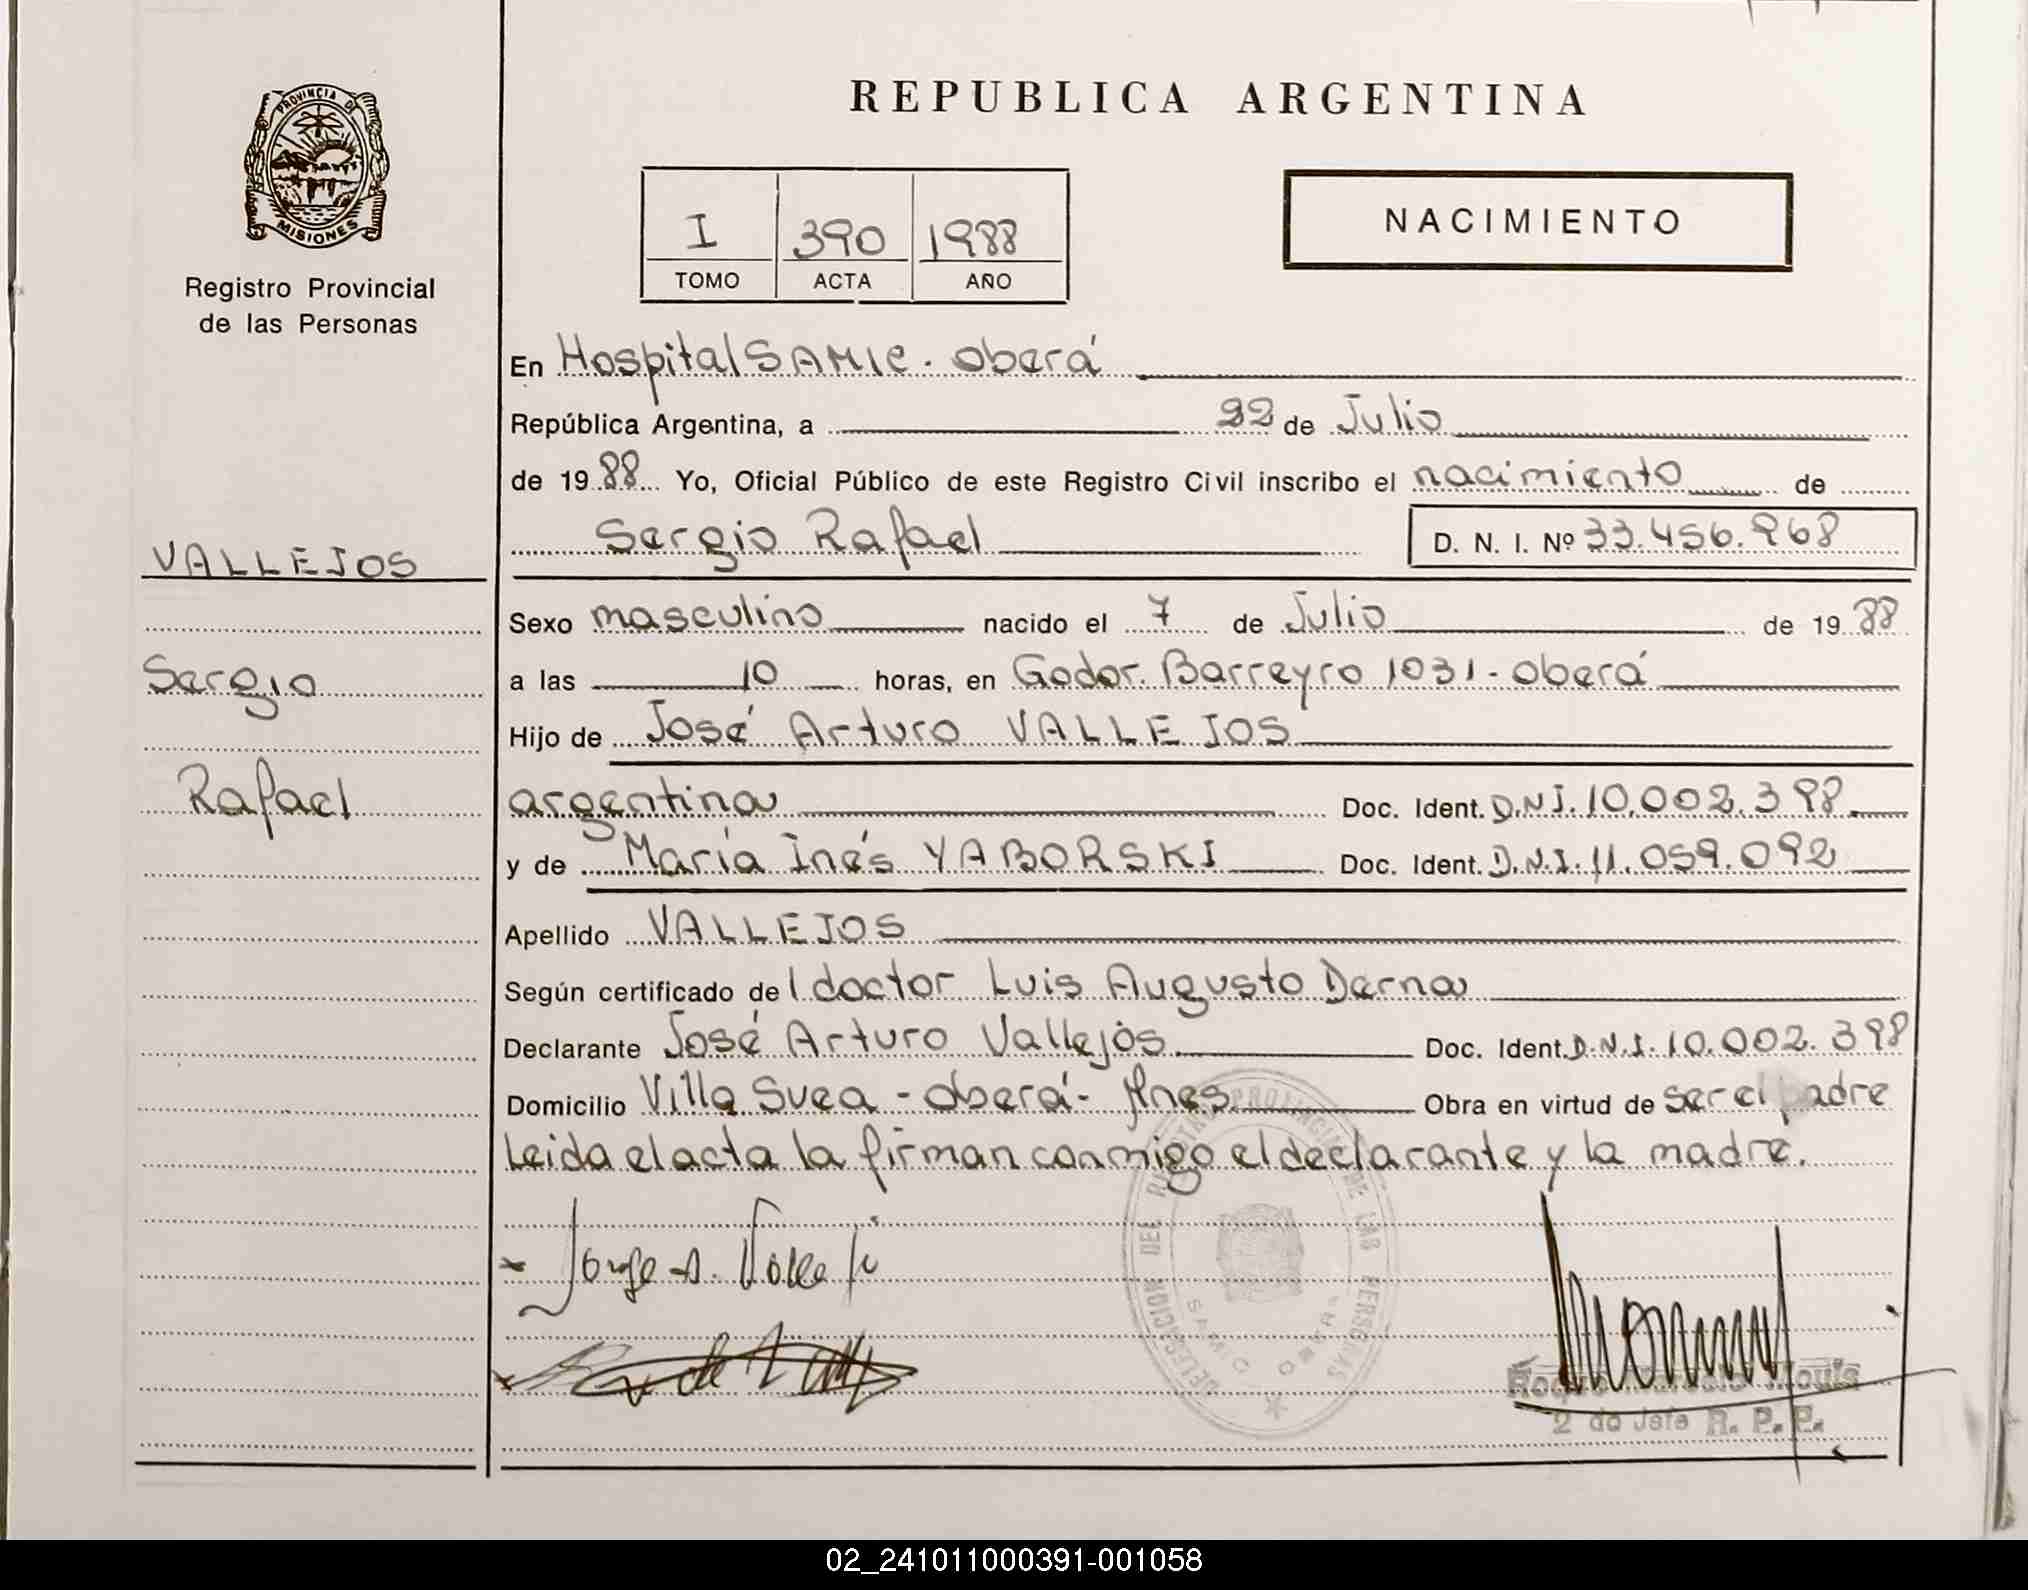 PROVINCIA DE
MISIONES
Registro Provincial
de las Personas
REPUBLICA ARGENTINA
I 390 1988
TOMO ACTA AÑO
NACIMIENTO
En Hospital SAMIC. Oberá
República Argentina, a 22 de Julio
de 1988 Yo, Oficial Público de este Registro Civil inscribo el nacimiento de
Sergio Rafael D. N. I. Nº 33.456.968
VALLEJOS
Sergio
Rafael
Sexo masculino nacido el 7 de Julio de 1988
a las 10 horas, en Gdor. Barreyro 1031 - Oberá
Hijo de José Arturo VALLEJOS
argentina Doc. Ident. D.N.I. 10.002.398
y de María Inés YABORSKI Doc. Ident. D.N.I. 11.059.092
Apellido VALLEJOS
Según certificado del doctor Luis Augusto Derna
Declarante José Arturo Vallejos Doc. Ident. D.N.I. 10.002.398
Domicilio Villa Svea - Oberá - Mnes Obra en virtud de ser el padre
Leida el acta la firman conmigo el declarante y la madre.
DELEGACION DEL REGISTRO PROVINCIAL DE LAS PERSONAS
SAMIC OBERA
2 do Jefe R. P. P.
02_241011000391-001058